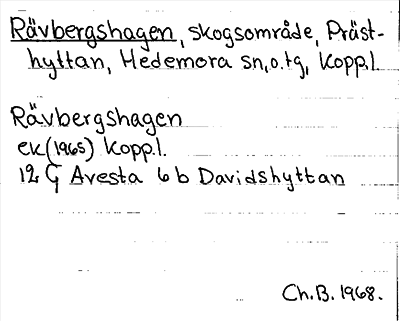 Rävbergshagen, skogsområde, Präst-
hyttan, Hedemora sn, o. tg, Kopp.l.
Rävbergshagen
ek (1965) Kopp.l.
12 G Avesta 6 b Davidshyttan
Ch.B. 1968.